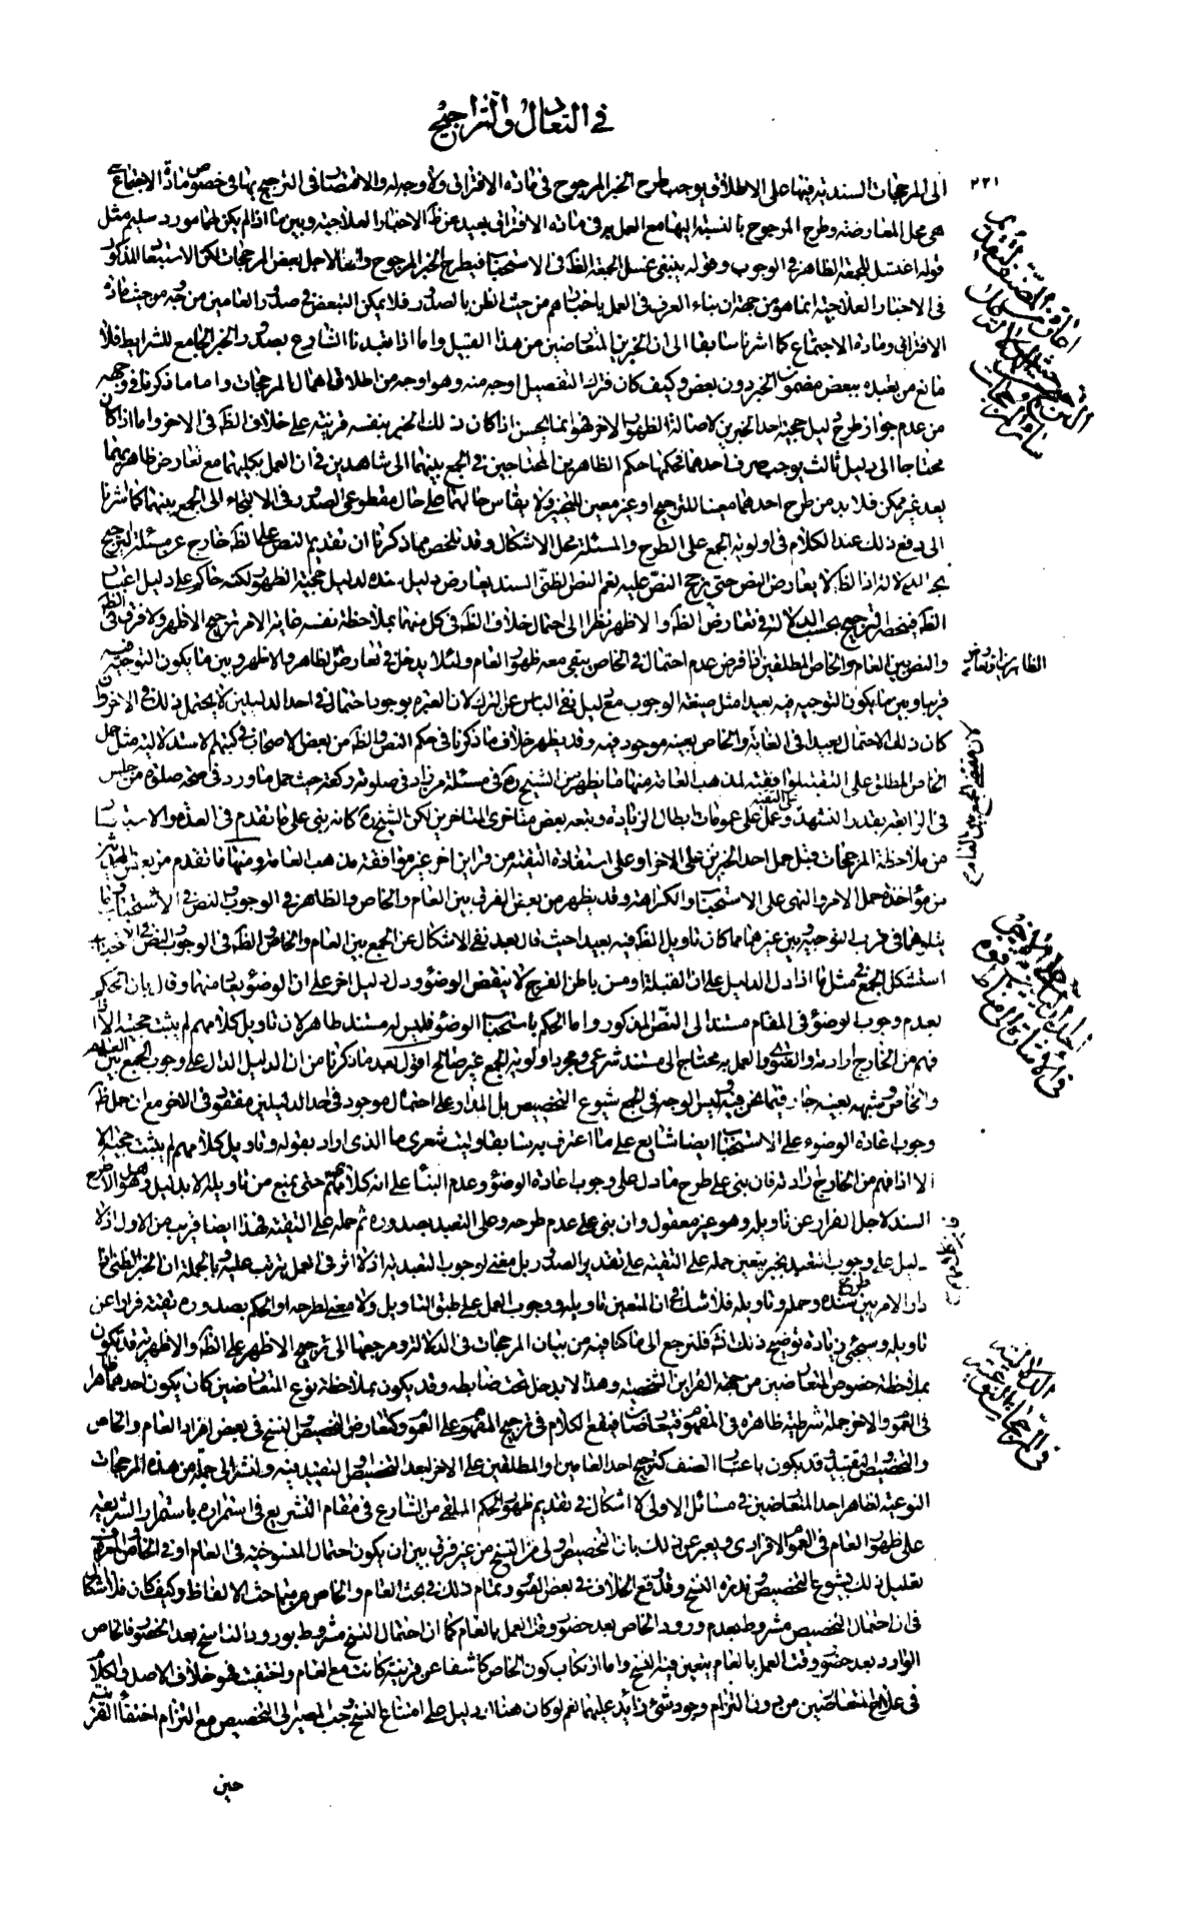 في التعادل والتراجيح
٢٢١
الى المرجحات السندية فيها على الاطلاق يوجب طرح الخبر المرجوح في مادة الافتراق ولا وجه له والاقتصار في الترجيح بها في خصوص مادة الاجتماع التي
هي محل المعارضة وطرح المرجوح بالنسبة اليها مع العمل به في مادة الافتراق بعيد عن ظ الاخبار العلاجية وبين ما اذا لم يكن لهما مورد سليم مثل
قوله اغتسل للجمعة الظاهر في الوجوب وقوله ينبغي غسل الجمعة الظ في الاستحباب فيطرح الخبر المرجوح رأسا لاجل بعض المرجحات لكن الاستبعاد المذكور
في الاخبار العلاجية انما هو من جهة ان بناء العرف في العمل باخبارهم من حيث الظن بالصدور فلا يمكن التبعض في صدور العامين من وجه من حيث مادة
الافتراق ومادة الاجتماع كما اشرنا سابقا الى ان الخبرين المتعارضين من هذا القبيل واما اذا تعبدنا الشارع بصدور الخبر الجامع للشرايط فلا
مانع من تعبده ببعض مضمون الخبر دون بعض وكيف كان فترك التفصيل اوجه منه وهو اوجه من اطلاق اهمال المرجحات واما ما ذكرنا في وجهه
من عدم جواز طرح دليل حجية احد الخبرين لاصالة الظهور الاخر فهو انما يحسن اذا كان ذلك الخبر بنفسه قرينة على خلاف الظ في الاخر واما اذا كان
محتاجا الى دليل ثالث يوجب صرف احدهما فحكمها حكم الظاهرين المحتاجين في الجمع بينهما الى شاهدين في ان العمل بكليهما مع تعارض ظاهريهما
يعد غير ممكن فلا بد من طرح احدهما معينا للترجيح او غير معين للتخيير ولا يقاس حالهما على حال مقطوعي الصدور في الالتجاء الى الجمع بينهما كما اشرنا
الى دفع ذلك عند الكلام في اولوية الجمع على الطرح والمسئلة محل الاشكال وقد تلخص مما ذكرنا ان تقديم النص على الظ خارج عن مسئلة الترجيح
بحسب الدلالة اذ الظ لا يعارض النص حتى يرجح النص عليه نعم النص الظني السند يعارض دليل سنده لدليل حجية الظهور لكنه حاكم على دليل اعتبار
الظ فينحصر الترجيح بحسب الدلالة في تعارض الظ والاظهر نظرا الى احتمال خلاف الظ في كل منهما بملاحظة نفسه غاية الامر ترجيح الاظهر ولا فرق في الظ
والنص بين العام والخاص المطلقين اذا فرض عدم احتمال في الخاص يبقى معه ظهور العام ولئلا يدخل في تعارض الظاهر والاظهر وبين ما يكون التوجيه فيه
قريبا وبين ما يكون التوجيه فيه بعيدا مثل صيغة الوجوب مع دليل نفي الباس عن الترك لان العبرة بوجود احتمال في احد الدليلين لا يحتمل ذلك في الاخر وان
كان ذلك الاحتمال بعيدا في الغاية والخاص بعينه موجود فيه وقد يظهر خلاف ما ذكرنا في حكم النص والظ من بعض الاصحاب في كتبهم الاستدلالية مثل حمل
الخاص المطلق على التقية لموافقته لمذهب العامة منها ما يظهر من الشيخ ره في مسئلة من زاد في صلوته ركعة حيث حمل ما ورد في صحة صلوة من جلس
في الرابعة بقدر التشهد على التقية وعمل على عمومات ابطال الزيادة وتبعه بعض متاخري المتاخرين لكن الشيخ ره كانه بنى على ما تقدم في العدة والاستبصار
من ملاحظة المرجحات قبل حمل احد الخبرين على الاخر او على استفادة التقية من قراين اخر غير موافقة مذهب العامة ومنها ما تقدم من بعض المحدثين
من مؤاخذة حمل الامر والنهي على الاستحباب والكراهة وقد يظهر من بعض الفرق بين العام والخاص والظاهر في الوجوب والنص في الاستحباب وما
يتلوهما في قرب التوجيه وبين غيرهما مما كان تاويل الظ فيه بعيدا حيث قال بعد نفي الاشكال عن الجمع بين العام والخاص والظ في الوجوب والنص في الاستحباب
استشكل الجمع في مثل ما اذا دل الدليل على ان القبلة او مس باطن الفرج لا ينقض الوضوء ودل دليل اخر على ان الوضوء يعاد منهما وقال بان الحكم
بعدم وجوب الوضوء في المقام مستندا الى النص المذكور واما الحكم باستحباب الوضوء فليس له مستند ظاهر لان تاويل كلامهم لم يثبت حجيته الا اذا
فهم من الخارج ارادته والفتوى والعمل به محتاج الى مستند شرعي ومجرد اولوية الجمع غير صالح اقول بعد ما ذكرنا من ان الدليل الدال على وجوب الجمع بين العام
والخاص وشبهه بعينه جار فيما نحن فيه وليس الوجه في الجمع شيوع التخصيص بل المدار على احتمال موجود في احد الدليلين مفقود في الاخر مع ان حمل ظ
وجوب اعادة الوضوء على الاستحباب ايضا شايع على ما اعترف به سابقا وليت شعري ما الذي اراد بقوله وتاويل كلامهم لم يثبت حجيته الا
الا اذا فهم من الخارج ارادته فان بنى على طرح ما دل على وجوب اعادة الوضوء وعدم البناء على انه كلامهم حتى يمنع من تاويله الا بدليل وهل هو الا طرح
السند لاجل الفرار عن تاويله وهو غير معقول وان بنى على عدم طرحه وعلى التعبد بصدوره ثم حمله على التقية فهذا ايضا قريب من الاول اذ لا
دليل على وجوب التعبد بخبر يتعين حمله على التقية على تقدير الصدور بل لا معنى لوجوب التعبد به اذ لا اثر في العمل يترتب عليه وبالجملة ان الخبر الظني اذا
دار الامر بين طرح سنده وحمله وتاويله فلا شك في ان المتعين تاويله ووجوب العمل على طبق التاويل ولا معنى لطرحه او الحكم بصدوره تقية فرارا عن
تاويله وسيجئ زيادة توضيح ذلك انش فلنرجع الى ما كنا فيه من بيان المرجحات في الدلالة ومرجعها الى ترجيح الاظهر على الظ والاظهرية قد تكون
بملاحظة خصوص المتعارضين من جهة القراين الشخصية وهذا لا يدخل تحت ضابطه وقد يكون بملاحظة نوع المتعارضين كان يكون احدهما ظاهرا
في العموم والاخر جملة شرطية ظاهرة في المفهوم فيتعارضان فيقع الكلام في ترجيح المفهوم على العموم وكتعارض التخصيص والنسخ في بعض افراد العام والخاص
والتخصيص والتقييد وقد يكون باعتبار الصنف كترجيح احد العامين او المطلقين على الاخر لبعد التخصيص او التقييد فيه ولنشر الى جملة من هذه المرجحات
النوعية لظاهر احد المتعارضين في مسائل الاولى لا اشكال في تقديم ظهور الحكم الملقى من الشارع في مقام التشريع في استمراره باستمرار الشريعة
على ظهور العام في العموم الافرادي ويعبر عن ذلك بان التخصيص اولى من النسخ من غير فرق بين ان يكون احتمال المنسوخية في العام او في الخاص والمعروف
تعليل ذلك بشيوع التخصيص وندرة النسخ وقد وقع الخلاف في بعض الصور وتمام ذلك في بحث العام والخاص من مباحث الالفاظ وكيف كان فلا اشكال
في ان احتمال التخصيص مشروط بعدم ورود الخاص بعد حضور وقت العمل بالعام كما ان احتمال النسخ مشروط بورود الناسخ بعد الحضور فالخاص
الوارد بعد حضور وقت العمل بالعام يتعين فيه النسخ واما ارتكاب كون الخاص كاشفا عن قرينة كانت مع العام واختفيت فهو خلاف الاصل والكلام
في علاج المتعارضين من دون التزام وجود شئ زايد عليهما نعم لو كان هناك دليل على امتناع النسخ وجب المصير الى التخصيص مع التزام اختفاء القرينة
حين